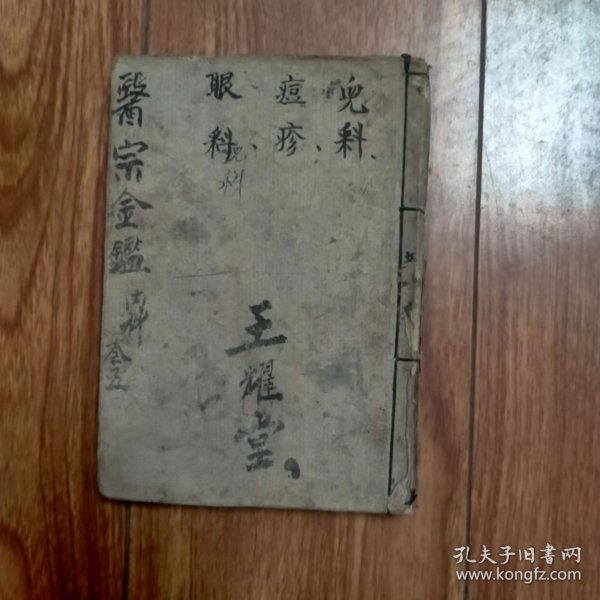 兒科、
痘疹、
眼科、
兒科
王耀堂
醫宗金鑑
内科 叁五
孔夫子旧书网
www.kongfz.com